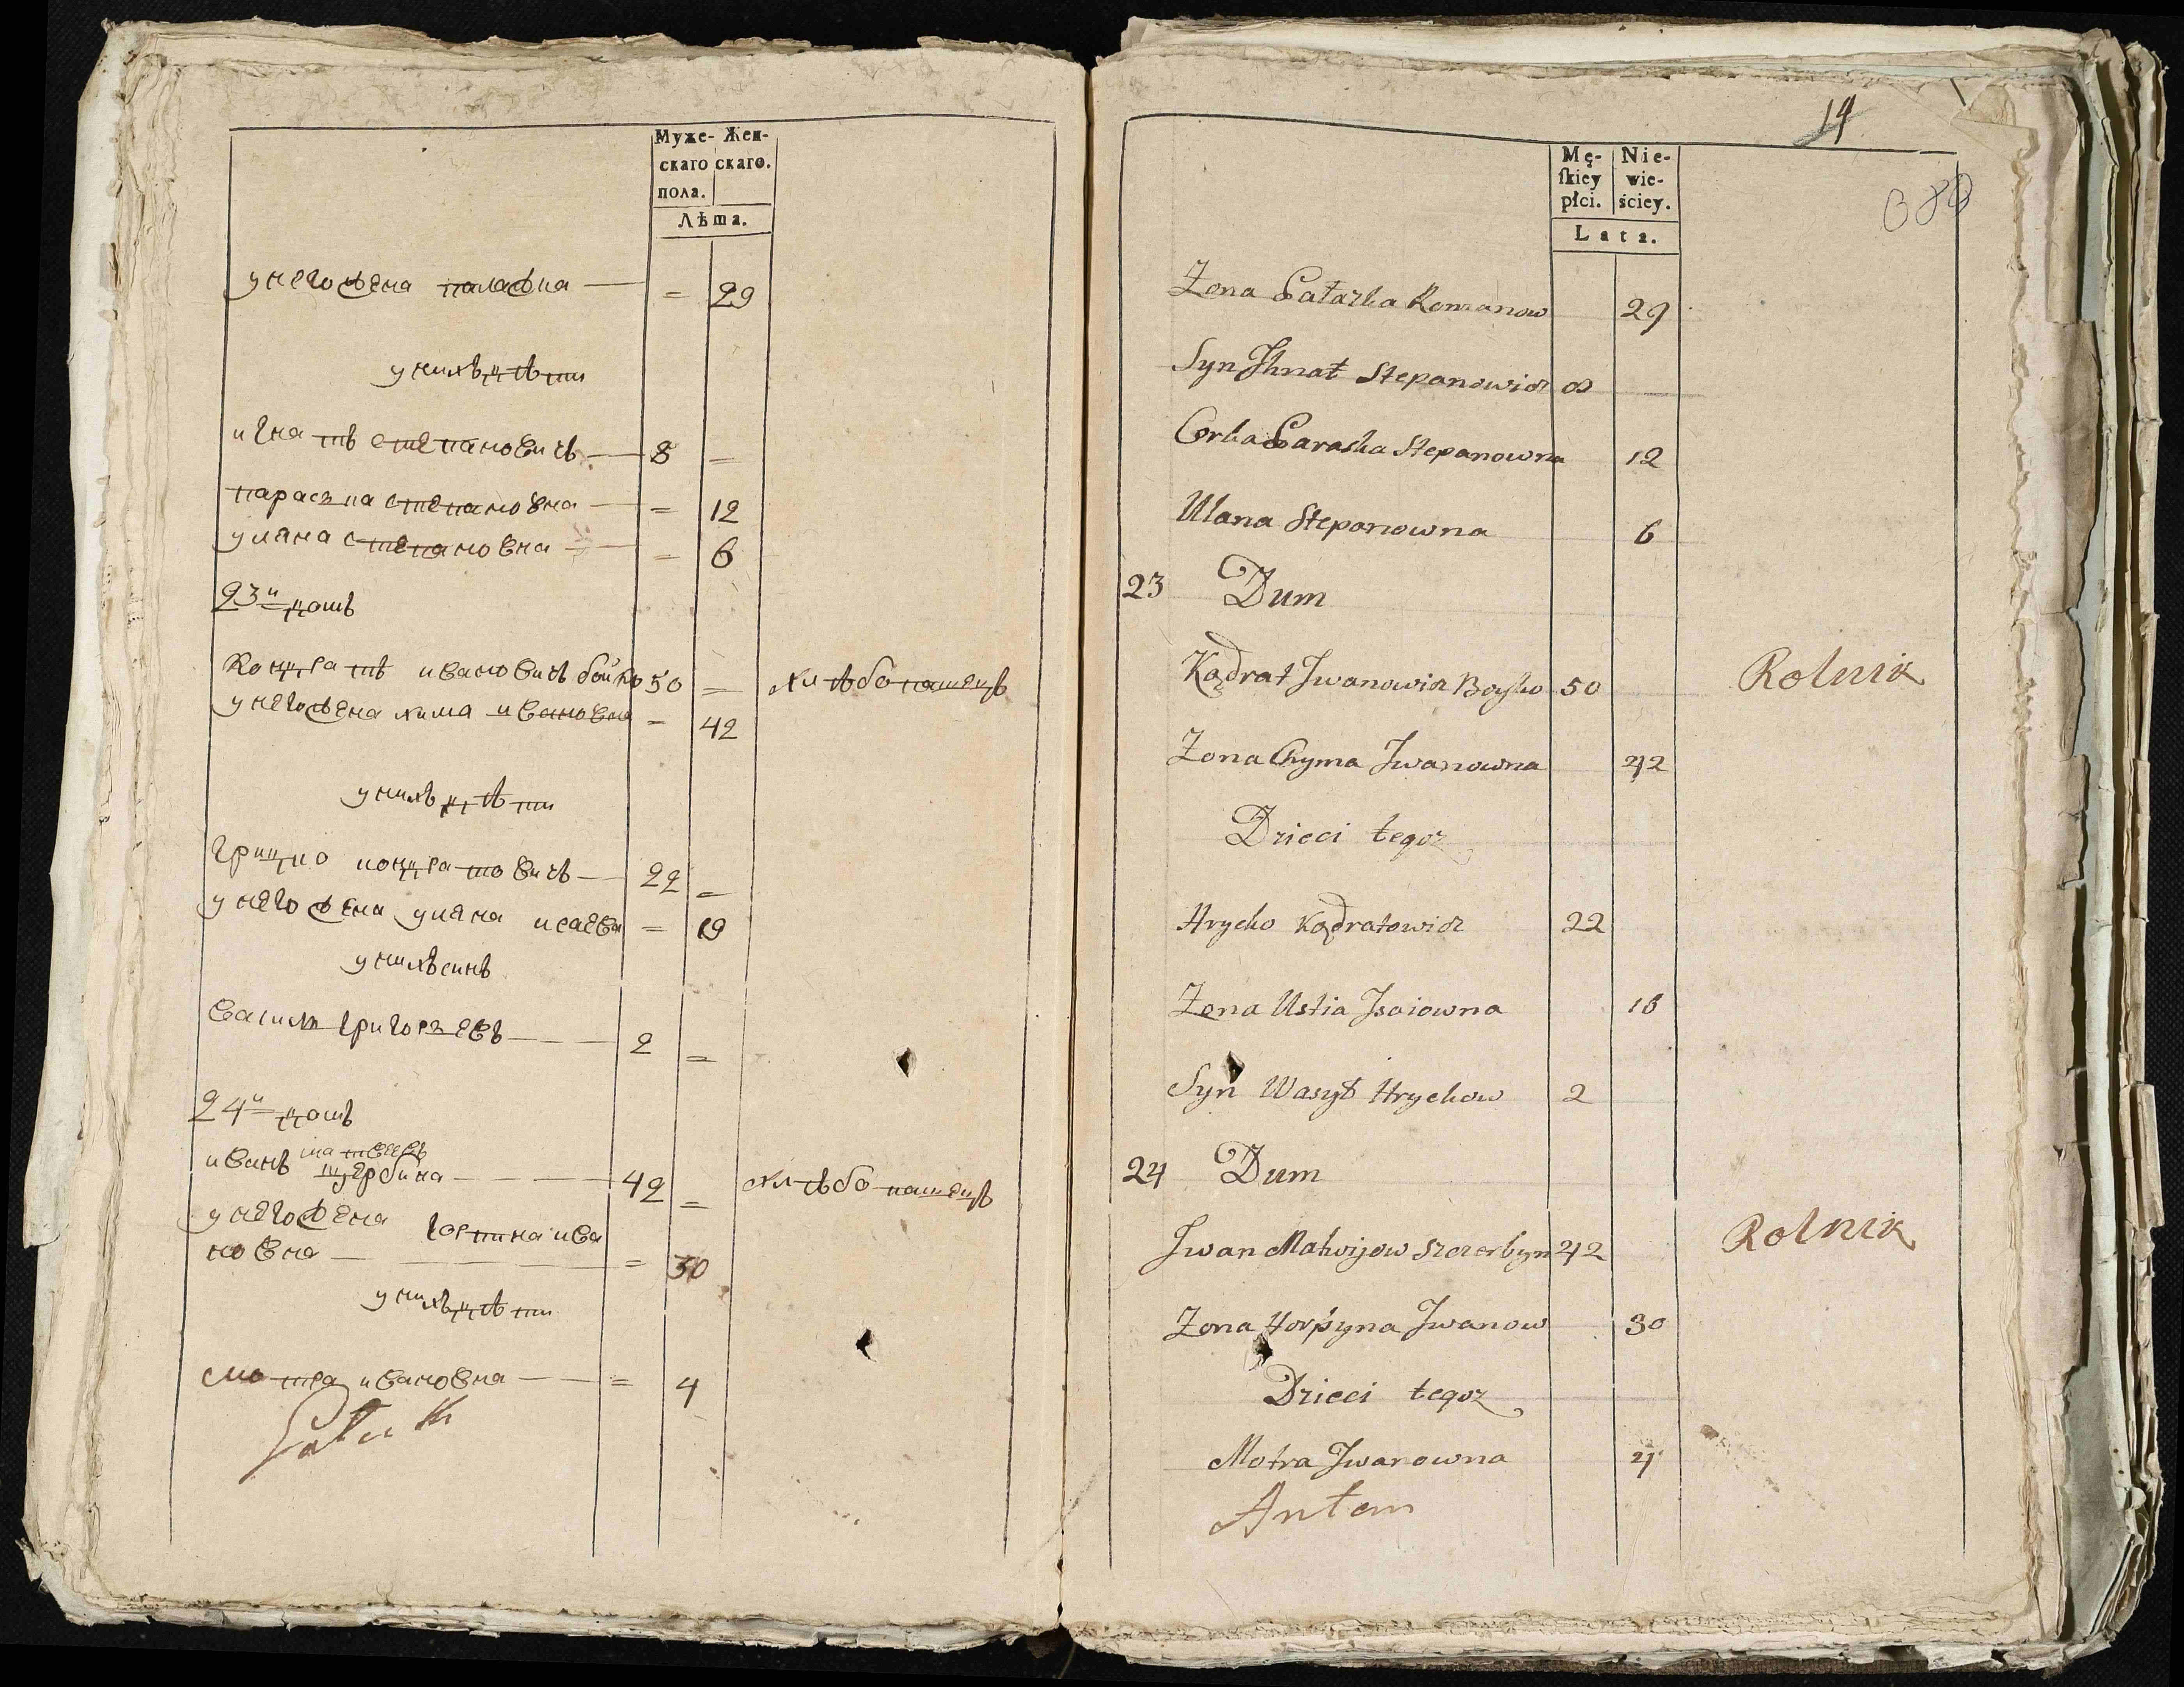 Муже- Жен-
скаго скаго.
пола.
Лѣта.
у него жена палажка — = 29
у нихъ дѣти
игнатъ степановичъ — 8 =
параска степановна — = 12
уляна степановна — = 6
23й домъ
Кондратъ ивановичъ бойко 50 = хлѣбопашецъ
у него жена хима ивановна = 42
у нихъ дѣти
грицко кондратовичъ — 22 =
у него жена уляна исаева = 19
у нихъ синъ
василь григорьевъ — 2 =
24й домъ
матвеевъ
иванъ щербина — 42 = хлѣбопашецъ
у него жена горпина ива
новна — = 30
у нихъ дѣти
мотра ивановна — = 4
14
Mę- Nie-
ſkiey wie-
płci. ściey.
Lata.
Zona Pałażka Romanow 29
Syn Ihnat Stepanowicz 8
Corka Paraska Stepanowna 12
Ulana Stepanowna 6
23 Dum
Kądrat Iwanowicz Boyko 50 Rolnik
Zona Chyma Iwanowna 42
Dzieci tegoz
Hrycko Kądratowicz 22
Zona Ustia Isaiowna 18
Syn Wasyl Hryckow 2
24 Dum
Iwan Matwijow Szczerbyn 42 Rolnik
Zona Horpyna Iwanow 30
Dzieci tegoz
Motra Iwanowna 4
Antem